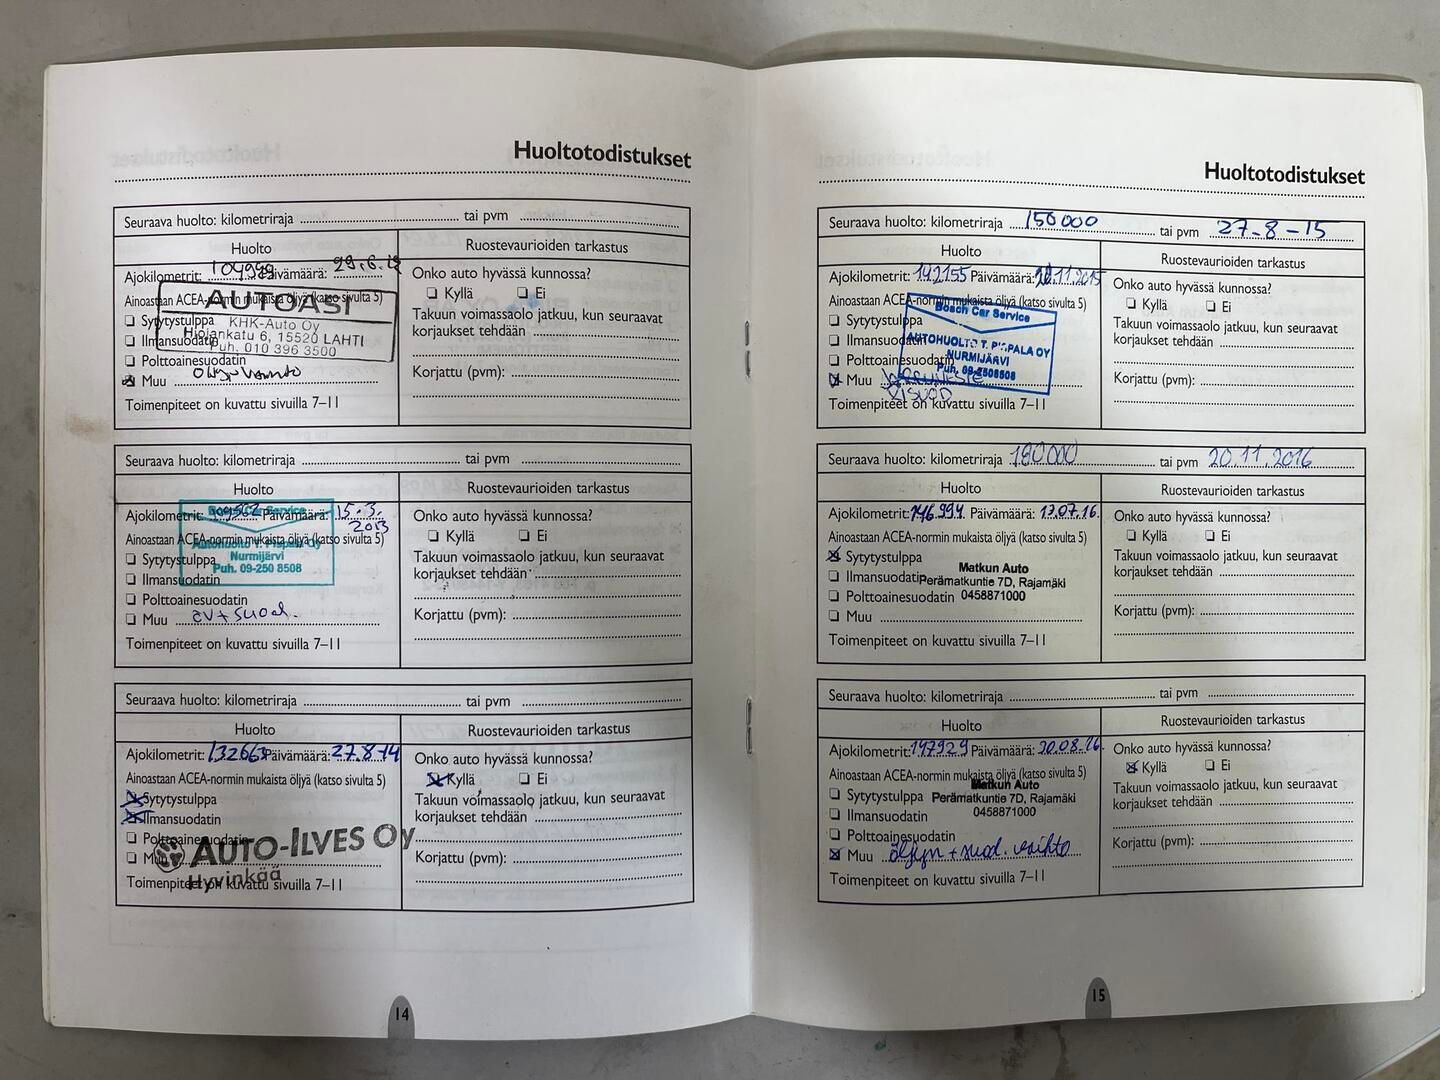 Huoltotodistukset
Seuraava huolto: kilometriraja tai pvm
Huolto Ruostevaurioiden tarkastus
Ajokilometrit: 104999 Päivämäärä: 29.6.12
Onko auto hyvässä kunnossa?
Ainoastaan ACEA-normin mukaista öljyä (katso sivulta 5)
AUTOASI
KHK-Auto Oy
Hiojankatu 6, 15520 LAHTI
Puh. 010 396 3500
Kyllä Ei
Sytytystulppa
Ilmansuodatin
Polttoainesuodatin
Muu
Takuun voimassaolo jatkuu, kun seuraavat
korjaukset tehdään
Korjattu (pvm):
Toimenpiteet on kuvattu sivuilla 7–11
Seuraava huolto: kilometriraja tai pvm
Huolto Ruostevaurioiden tarkastus
Ajokilometrit: Päivämäärä: 15.3.
2013
Onko auto hyvässä kunnossa?
Ainoastaan ACEA-normin mukaista öljyä (katso sivulta 5)
Bosch Car Service
Autohuolto T. Pispala Oy
Nurmijärvi
Puh. 09-250 8508
Kyllä Ei
Sytytystulppa
Ilmansuodatin
Polttoainesuodatin
Muu öv+suod.
Takuun voimassaolo jatkuu, kun seuraavat
korjaukset tehdään
Korjattu (pvm):
Toimenpiteet on kuvattu sivuilla 7–11
Seuraava huolto: kilometriraja tai pvm
Huolto Ruostevaurioiden tarkastus
Ajokilometrit: 132663 Päivämäärä: 27.8.14
Onko auto hyvässä kunnossa?
Ainoastaan ACEA-normin mukaista öljyä (katso sivulta 5)
Kyllä Ei
Sytytystulppa
Ilmansuodatin
Polttoainesuodatin
Muu
AUTO-ILVES Oy
Hyvinkää
Takuun voimassaolo jatkuu, kun seuraavat
korjaukset tehdään
Korjattu (pvm):
Toimenpiteet on kuvattu sivuilla 7–11
14
Huoltotodistukset
Seuraava huolto: kilometriraja 150000 tai pvm 27-8-15
Huolto Ruostevaurioiden tarkastus
Ajokilometrit: 142155 Päivämäärä: .11.2015
Onko auto hyvässä kunnossa?
Ainoastaan ACEA-normin mukaista öljyä (katso sivulta 5)
Bosch Car Service
AUTOHUOLTO T. PISPALA OY
NURMIJÄRVI
Puh. 09-2508508
Kyllä Ei
Sytytystulppa
Ilmansuodatin
Polttoainesuodatin
Muu JARRUNESTE
Takuun voimassaolo jatkuu, kun seuraavat
korjaukset tehdään
Korjattu (pvm):
Toimenpiteet on kuvattu sivuilla 7–11
Seuraava huolto: kilometriraja 180000 tai pvm 20.11.2016
Huolto Ruostevaurioiden tarkastus
Ajokilometrit: 146.994 Päivämäärä: 17.07.16.
Onko auto hyvässä kunnossa?
Ainoastaan ACEA-normin mukaista öljyä (katso sivulta 5)
Kyllä Ei
Sytytystulppa
Ilmansuodatin
Polttoainesuodatin
Muu
Matkun Auto
Perämatkuntie 7D, Rajamäki
0458871000
Takuun voimassaolo jatkuu, kun seuraavat
korjaukset tehdään
Korjattu (pvm):
Toimenpiteet on kuvattu sivuilla 7–11
Seuraava huolto: kilometriraja tai pvm
Huolto Ruostevaurioiden tarkastus
Ajokilometrit: 147929 Päivämäärä: 20.08.16.
Onko auto hyvässä kunnossa?
Ainoastaan ACEA-normin mukaista öljyä (katso sivulta 5)
Matkun Auto
Perämatkuntie 7D, Rajamäki
0458871000
Kyllä Ei
Sytytystulppa
Ilmansuodatin
Polttoainesuodatin
Muu öljyn + suod. vaihto
Takuun voimassaolo jatkuu, kun seuraavat
korjaukset tehdään
Korjattu (pvm):
Toimenpiteet on kuvattu sivuilla 7–11
15